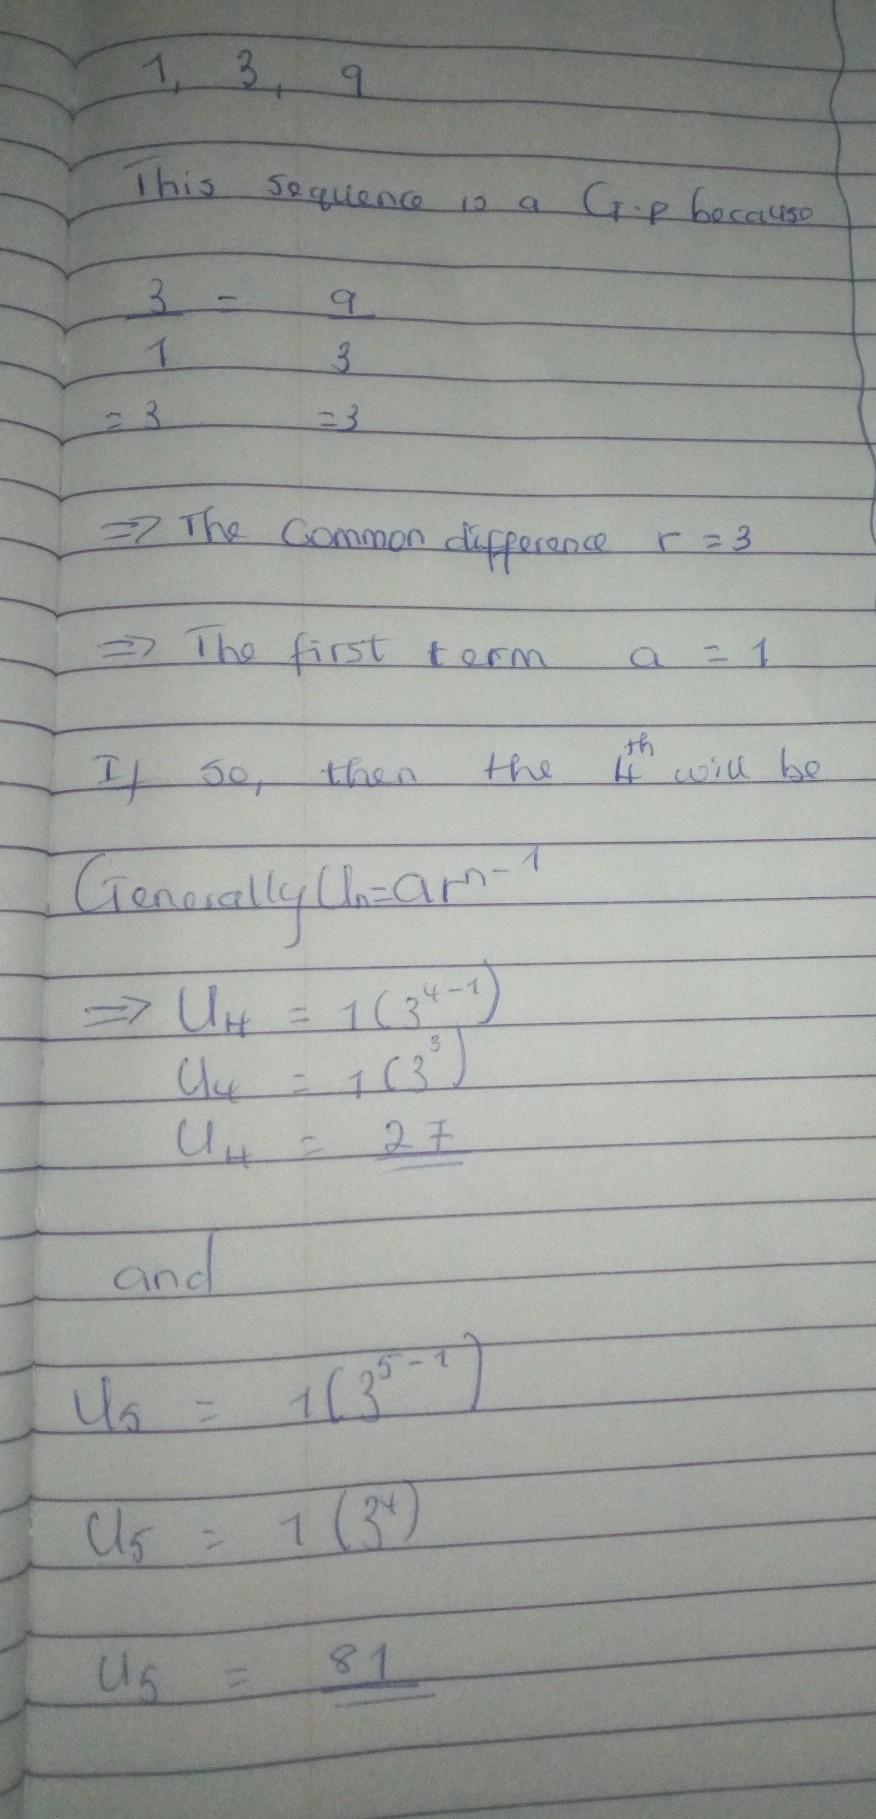 1, 3, 9
This sequence is a G.P because
3 = 9
1 3
= 3 =3
=> The Common difference r = 3
=> The first term a = 1
If so, then the 4th will be
Generally Un=arn-1
=> U4 = 1(3^4-1)
U4 = 1(3^3)
U4 = 27
and
U5 = 1(3^5-1)
U5 = 1(3^4)
U5 = 81